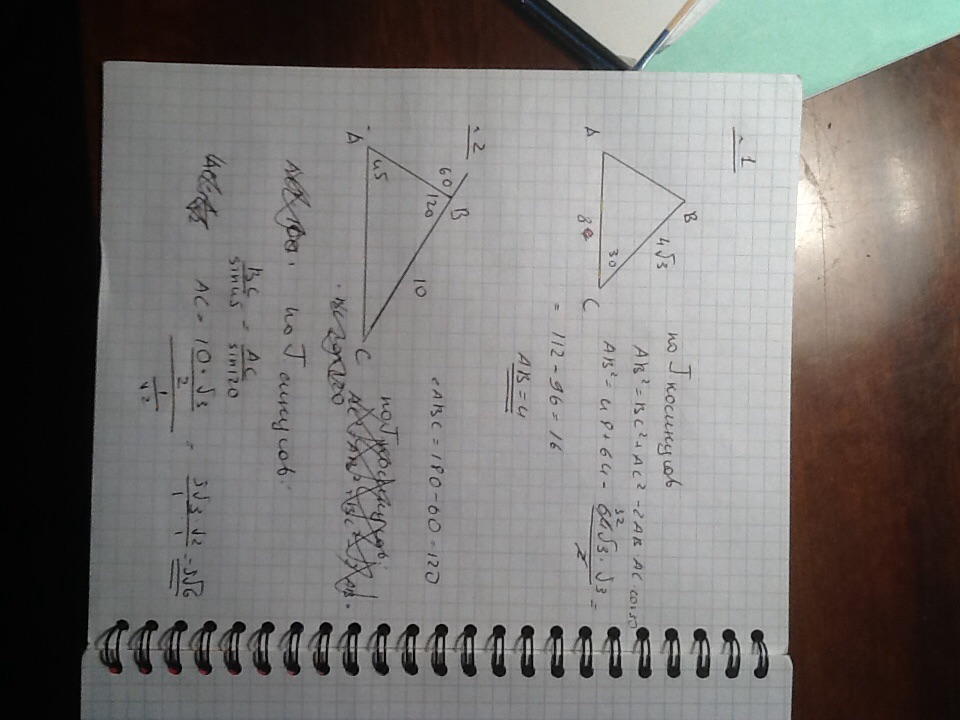 №1
B
4√3
A
8
30
C
по Т косинусов
AB² = BC² + AC² - 2AB·AC·cos30
AB² = 48 + 64 - 64√3·√3 =
32
2
= 112 - 96 = 16
AB = 4
№2
60
B
120
10
A
45
C
∠ABC = 180 - 60 = 120
по Т косинусов
по Т синусов.
BC/sin45 = AC/sin120
AC = 10·√3/2 / 1/√2 = 5√3·√2/1 = 5√6